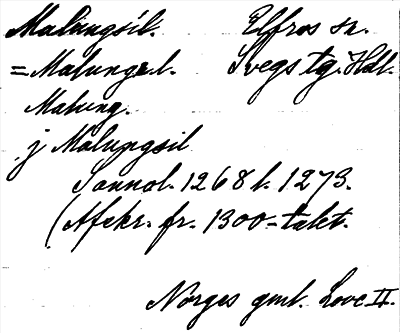 Malungsil. Elfros sn.
= Malunge.l. Svegs tg. Hdl.
Malung.
j Malungsil
Sannol. 1268 l. 1273.
(Afskr. fr. 1300-talet.
Norges gml. Love II.